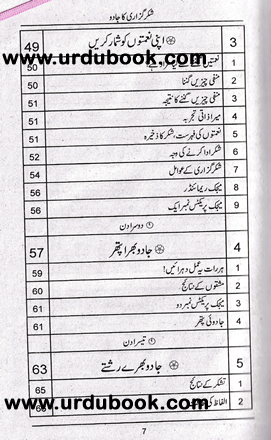 شکر گزاری کا جادو
3 اپنی نعمتوں کو شمار کریں 49
1 نعمتیں 50
2 منفی چیزیں گننا 50
3 منفی چیزیں گننے کا نتیجہ 51
4 میرا ذاتی تجربہ 51
5 نعمتوں کی فہرست، شکر کا ذخیرہ 51
6 شکر ادا کرنے کی وجہ 52
7 شکر گزاری کے عوامل 54
8 میجک ریمائنڈر 56
9 میجک پریکٹس نمبر ایک 56
دوسرا دن
4 جادو بھرا پتھر 57
1 ہر رات یہ عمل دہرائیں! 59
2 مشقوں کے نتائج 60
3 میجک پریکٹس نمبر دو 61
4 جادوئی پتھر 61
تیسرا دن
5 جادو بھرے رشتے 63
1 تشکر کے نتائج 65
2 الفاظ کی
7
www.urdubook.com
www.urdubook.com